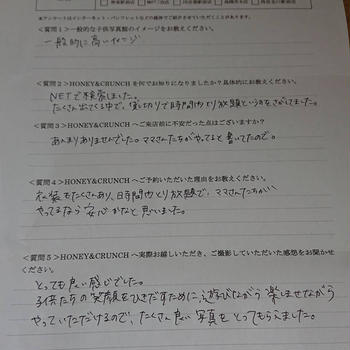 本アンケートはインターネット・パンフレットなどの媒体でご紹介させていただくことがございます。
＜質問１＞一般的な子供写真館のイメージをお教えください。
一般的に高いイメージ
＜質問２＞HONEY&CRUNCH を何でお知りになりましたか？具体的にお教えください。
NETで検索しました。
たくさん出てくる中で、貸し切りで時間内とり放題というのをさがしてました。
＜質問３＞HONEY&CRUNCH へご来店前に不安だった点はございますか？
あんまりありませんでした。ママさんたちがやってると書いてたので。
＜質問４＞HONEY&CRUNCH へご予約いただいた理由をお教えください。
衣装もたくさんあり、時間内とり放題で、ママさんたちが
やってるなら安心かなと思いました。
＜質問５＞HONEY&CRUNCH へ実際お越しいただき、ご撮影していただいた感想をお聞かせ
ください。
とっても良い感じでした。
子供たちの笑顔をひきだすために、遊びながら楽しませながら
やっていただけるので、たくさん良い写真をとってもらえました。